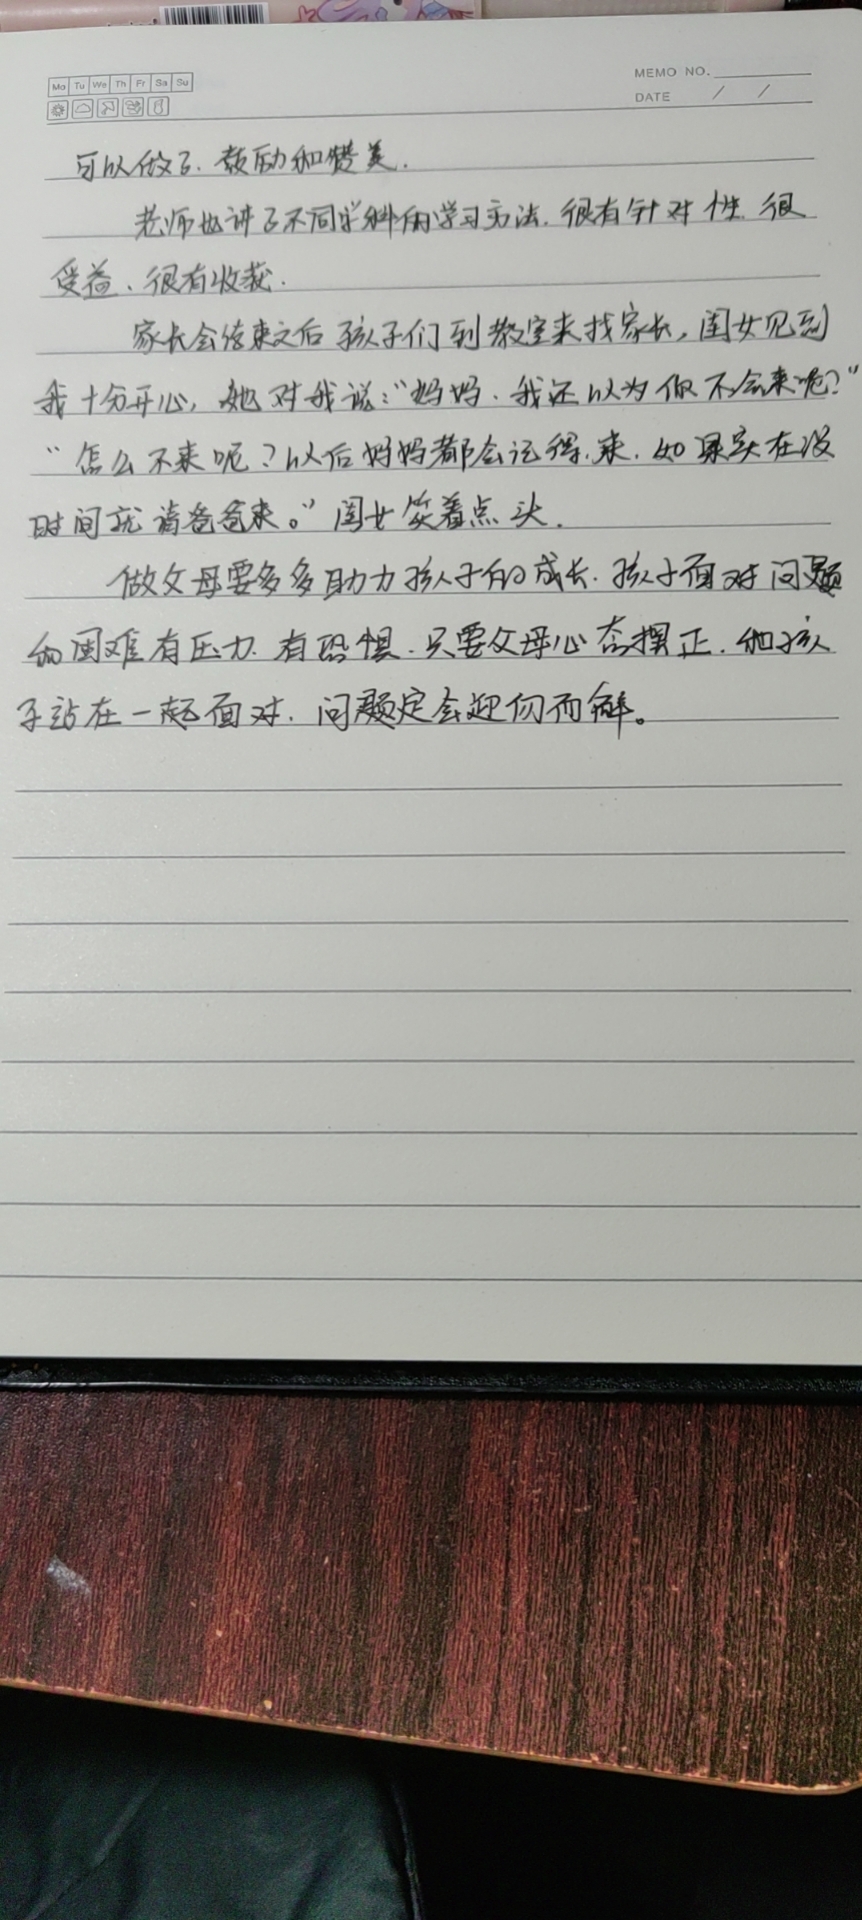 Mo Tu We Th Fr Sa Su
MEMO NO.
DATE / /
可以做了、鼓励和赞美.
老师也讲了不同学科的学习方法.很有针对性.很
受益、很有收获.
家长会结束之后孩子们到教室来找家长，闺女见到
我十分开心，她对我说：“妈妈.我还以为你不会来呢？”
“怎么不来呢？以后妈妈都会记得.来.如果实在没
时间就请爸爸来。”闺女笑着点头.
做父母要多多助力孩子的成长.孩子面对问题
和困难有压力.有恐惧.只要父母心态摆正.和孩
子站在一起面对.问题定会迎仞而解。